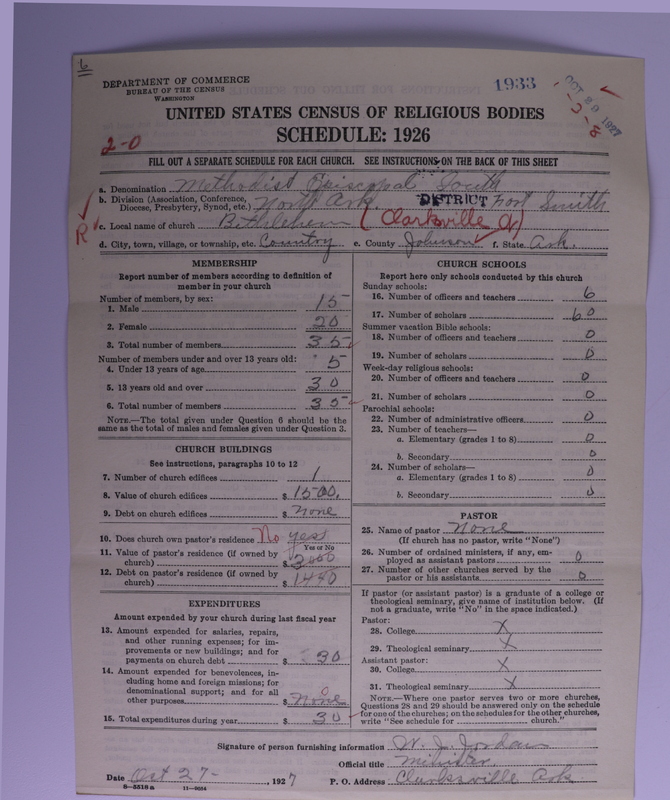 6
DEPARTMENT OF COMMERCE
BUREAU OF THE CENSUS
WASHINGTON
1933
OCT 29 1927
1-3-8
UNITED STATES CENSUS OF RELIGIOUS BODIES
SCHEDULE: 1926
2-0
FILL OUT A SEPARATE SCHEDULE FOR EACH CHURCH. SEE INSTRUCTIONS ON THE BACK OF THIS SHEET
a. Denomination Methodist Episcopal South
b. Division (Association, Conference, Diocese, Presbytery, Synod, etc.) North Ark. DISTRICT Fort Smith
R
c. Local name of church Bethlehem (Clarksville Cr)
d. City, town, village, or township, etc. Country e. County Johnson f. State Ark.
MEMBERSHIP
Report number of members according to definition of
member in your church
Number of members, by sex:
1. Male 15
2. Female 20
3. Total number of members 35
Number of members under and over 13 years old:
4. Under 13 years of age 5
5. 13 years old and over 30
6. Total number of members 35
NOTE.—The total given under Question 6 should be the
same as the total of males and females given under Question 3.
CHURCH BUILDINGS
See instructions, paragraphs 10 to 12
7. Number of church edifices 1
8. Value of church edifices $1500.
9. Debt on church edifices $ None
10. Does church own pastor's residence No yes
Yes or No
11. Value of pastor's residence (if owned by
church) $3000
12. Debt on pastor's residence (if owned by
church) $1440
EXPENDITURES
Amount expended by your church during last fiscal year
13. Amount expended for salaries, repairs,
and other running expenses; for im-
provements or new buildings; and for
payments on church debt $30
14. Amount expended for benevolences, in-
cluding home and foreign missions; for
denominational support; and for all
other purposes $ None 0
15. Total expenditures during year $30
CHURCH SCHOOLS
Report here only schools conducted by this church
Sunday schools:
16. Number of officers and teachers 6
17. Number of scholars 60
Summer vacation Bible schools:
18. Number of officers and teachers 0
19. Number of scholars 0
Week-day religious schools:
20. Number of officers and teachers 0
21. Number of scholars 0
Parochial schools:
22. Number of administrative officers 0
23. Number of teachers—
a. Elementary (grades 1 to 8) 0
b. Secondary 0
24. Number of scholars—
a. Elementary (grades 1 to 8) 0
b. Secondary 0
PASTOR
25. Name of pastor None
(If church has no pastor, write "None")
26. Number of ordained ministers, if any, em-
ployed as assistant pastors 0
27. Number of other churches served by the
pastor or his assistants 0
If pastor (or assistant pastor) is a graduate of a college or
theological seminary, give name of institution below. (If
not a graduate, write "No" in the space indicated.)
Pastor:
28. College X
29. Theological seminary X
Assistant pastor:
30. College X
31. Theological seminary X
NOTE.—Where one pastor serves two or more churches,
Questions 28 and 29 should be answered only on the schedule
for one of the churches; on the schedules for the other churches,
write "See schedule for ____ church."
Signature of person furnishing information W. J. Jordan
Official title Minister.
Date Oct 27- , 1927 P. O. Address Clarksville Ark
8-5316 a 11-9034